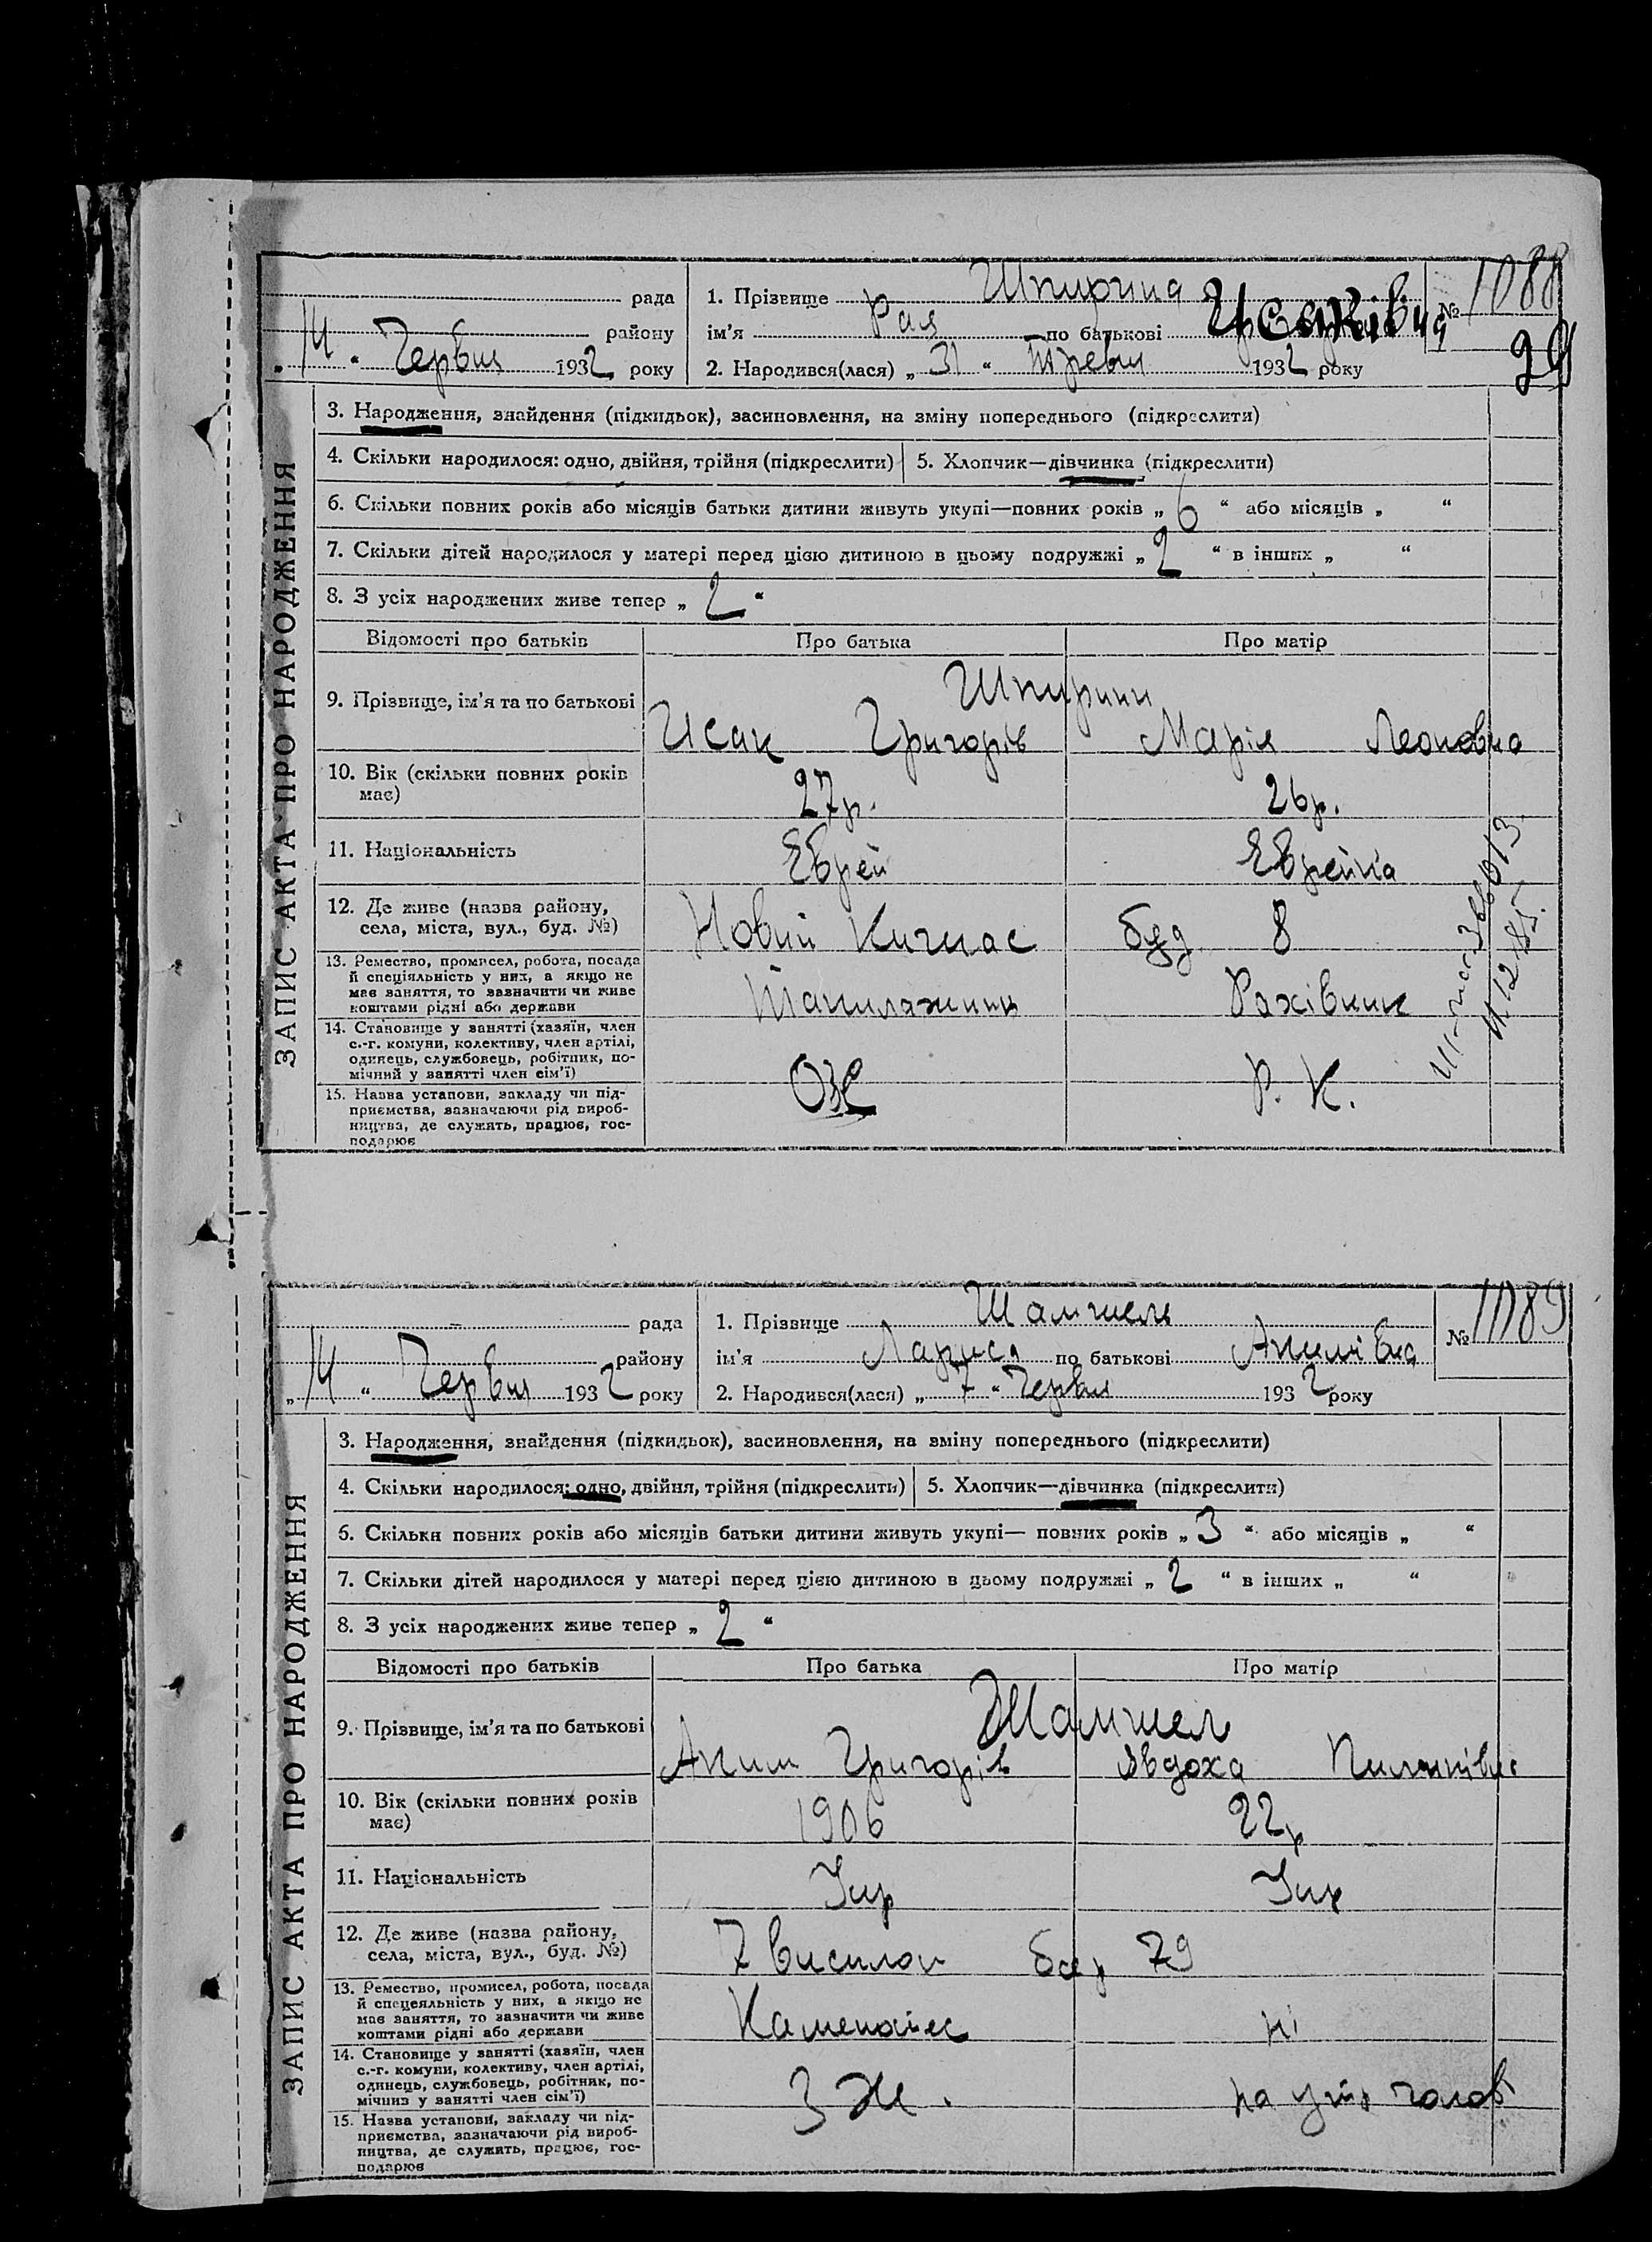 ЗАПИС АКТА ПРО НАРОДЖЕННЯ
рада
району
„14“ Червня 1932 року
1. Прізвище Шпирина
ім’я Рая по батькові Исаківна
2. Народився(лася) „31“ Травня 1932 року
№ 1088
3. Народження, знайдення (підкидьок), засиновлення, на зміну попереднього (підкреслити)
4. Скільки народилося: одно, двійня, трійня (підкреслити)
5. Хлопчик—дівчинка (підкреслити)
6. Скільки повних років або місяців батьки дитини живуть укупі—повних років „6“ або місяців „ “
7. Скільки дітей народилося у матері перед цією дитиною в цьому подружжі „2“ в інших „ “
8. З усіх народжених живе тепер „2“
Відомості про батьків
Про батька
Про матір
9. Прізвище, ім’я та по батькові
Шпирини
Исак Григорів
Марія Леоновна
10. Вік (скільки повних років
має)
27р.
26р.
11. Національність
Еврей
Еврейка
12. Де живе (назва району,
села, міста, вул., буд. №)
Новий буд 8
13. Ремество, промисел, робота, посада
й спеціяльність у них, а якщо не
має заняття, то зазначити чи живе
коштами рідні або держави
Рахівник
14. Становище у занятті (хазяїн, член
с.-г. комуни, колективу, член артілі,
одинець, службовець, робітник, по-
мічний у занятті член сім’ї)
15. Назва установи, закладу чи під-
приємства, зазначаючи рід вироб-
ництва, де служить, працює, гос-
подарює
ОЗС
Р. К.
ЗАПИС АКТА ПРО НАРОДЖЕННЯ
рада
району
„14“ Червня 1932 року
1. Прізвище Шамшель
ім’я Лариса по батькові Акимівна
2. Народився(лася) „7“ Червня 1932 року
№ 1089
3. Народження, знайдення (підкидьок), засиновлення, на зміну попереднього (підкреслити)
4. Скільки народилося: одно, двійня, трійня (підкреслить)
5. Хлопчик—дівчинка (підкреслити)
6. Скільки повних років або місяців батьки дитини живуть укупі— повних років „3“ або місяців „ “
7. Скільки дітей народилося у матері перед цією дитиною в цьому подружжі „2“ в інших „ “
8. З усіх народжених живе тепер „2“
Відомості про батьків
Про батька
Про матір
9. Прізвище, ім’я та по батькові
Шамшель
Аким Григорів
Явдоха Пилипівна
10. Вік (скільки повних років
має)
1906
22р
11. Національність
Укр
Укр
12. Де живе (назва району,
села, міста, вул., буд. №)
7 79
13. Ремество, промисел, робота, посада
й спецеяльність у них, а якщо не
має заняття, то зазначити чи живе
коштами рідні або держави
ні
14. Становище у занятті (хазяїн, член
с.-г. комуни, колективу, член артілі,
одинець, службовець, робітник, по-
мічниз у занятті член сім’ї)
15. Назва установи, закладу чи під-
приємства, зазначаючи рід вироб-
ництва, де служить, працює, гос-
подарює
на утр